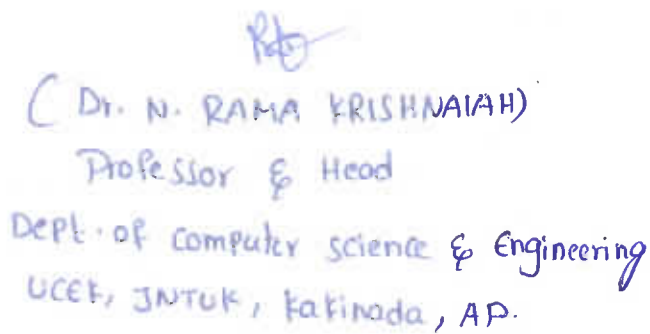 ( Dr. N. RAMA KRISHNAIAH)
Professor & Head
Dept. of computer science & Engineering
UCEK, JNTUK, kakinada, AP.